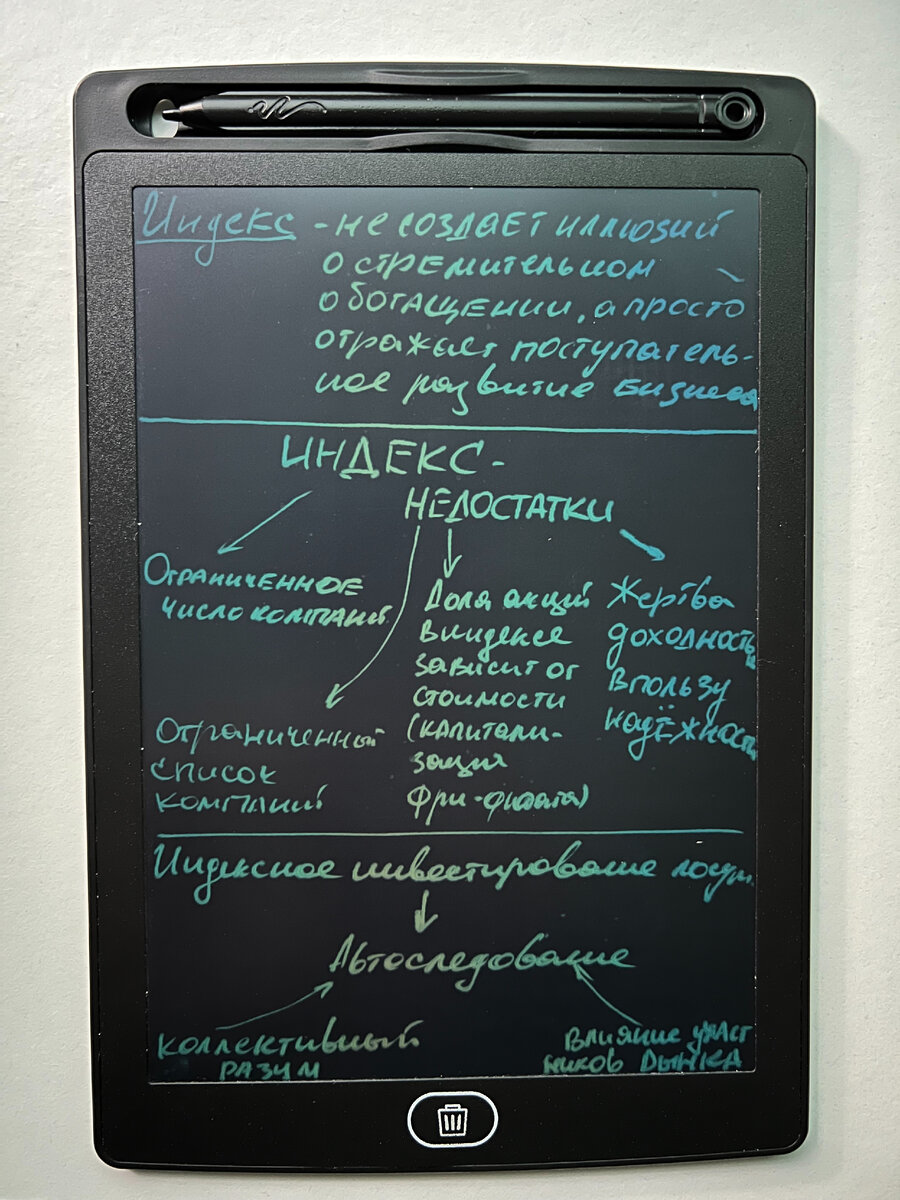 Индекс - не создает иллюзий
о стремительном
обогащении, а просто
отражает поступатель-
ное развитие бизнеса
ИНДЕКС -
НЕДОСТАТКИ
Ограниченное
число компаний
Ограниченный
список
компаний
Доля акций
в индексе
зависит от
стоимости
(капитали-
зация
фри-флоата)
Жертва
доходность
в пользу
надёжност
Индексное инвестирование
Автоследование
коллективный
разум
Влияние участ
ников рынка